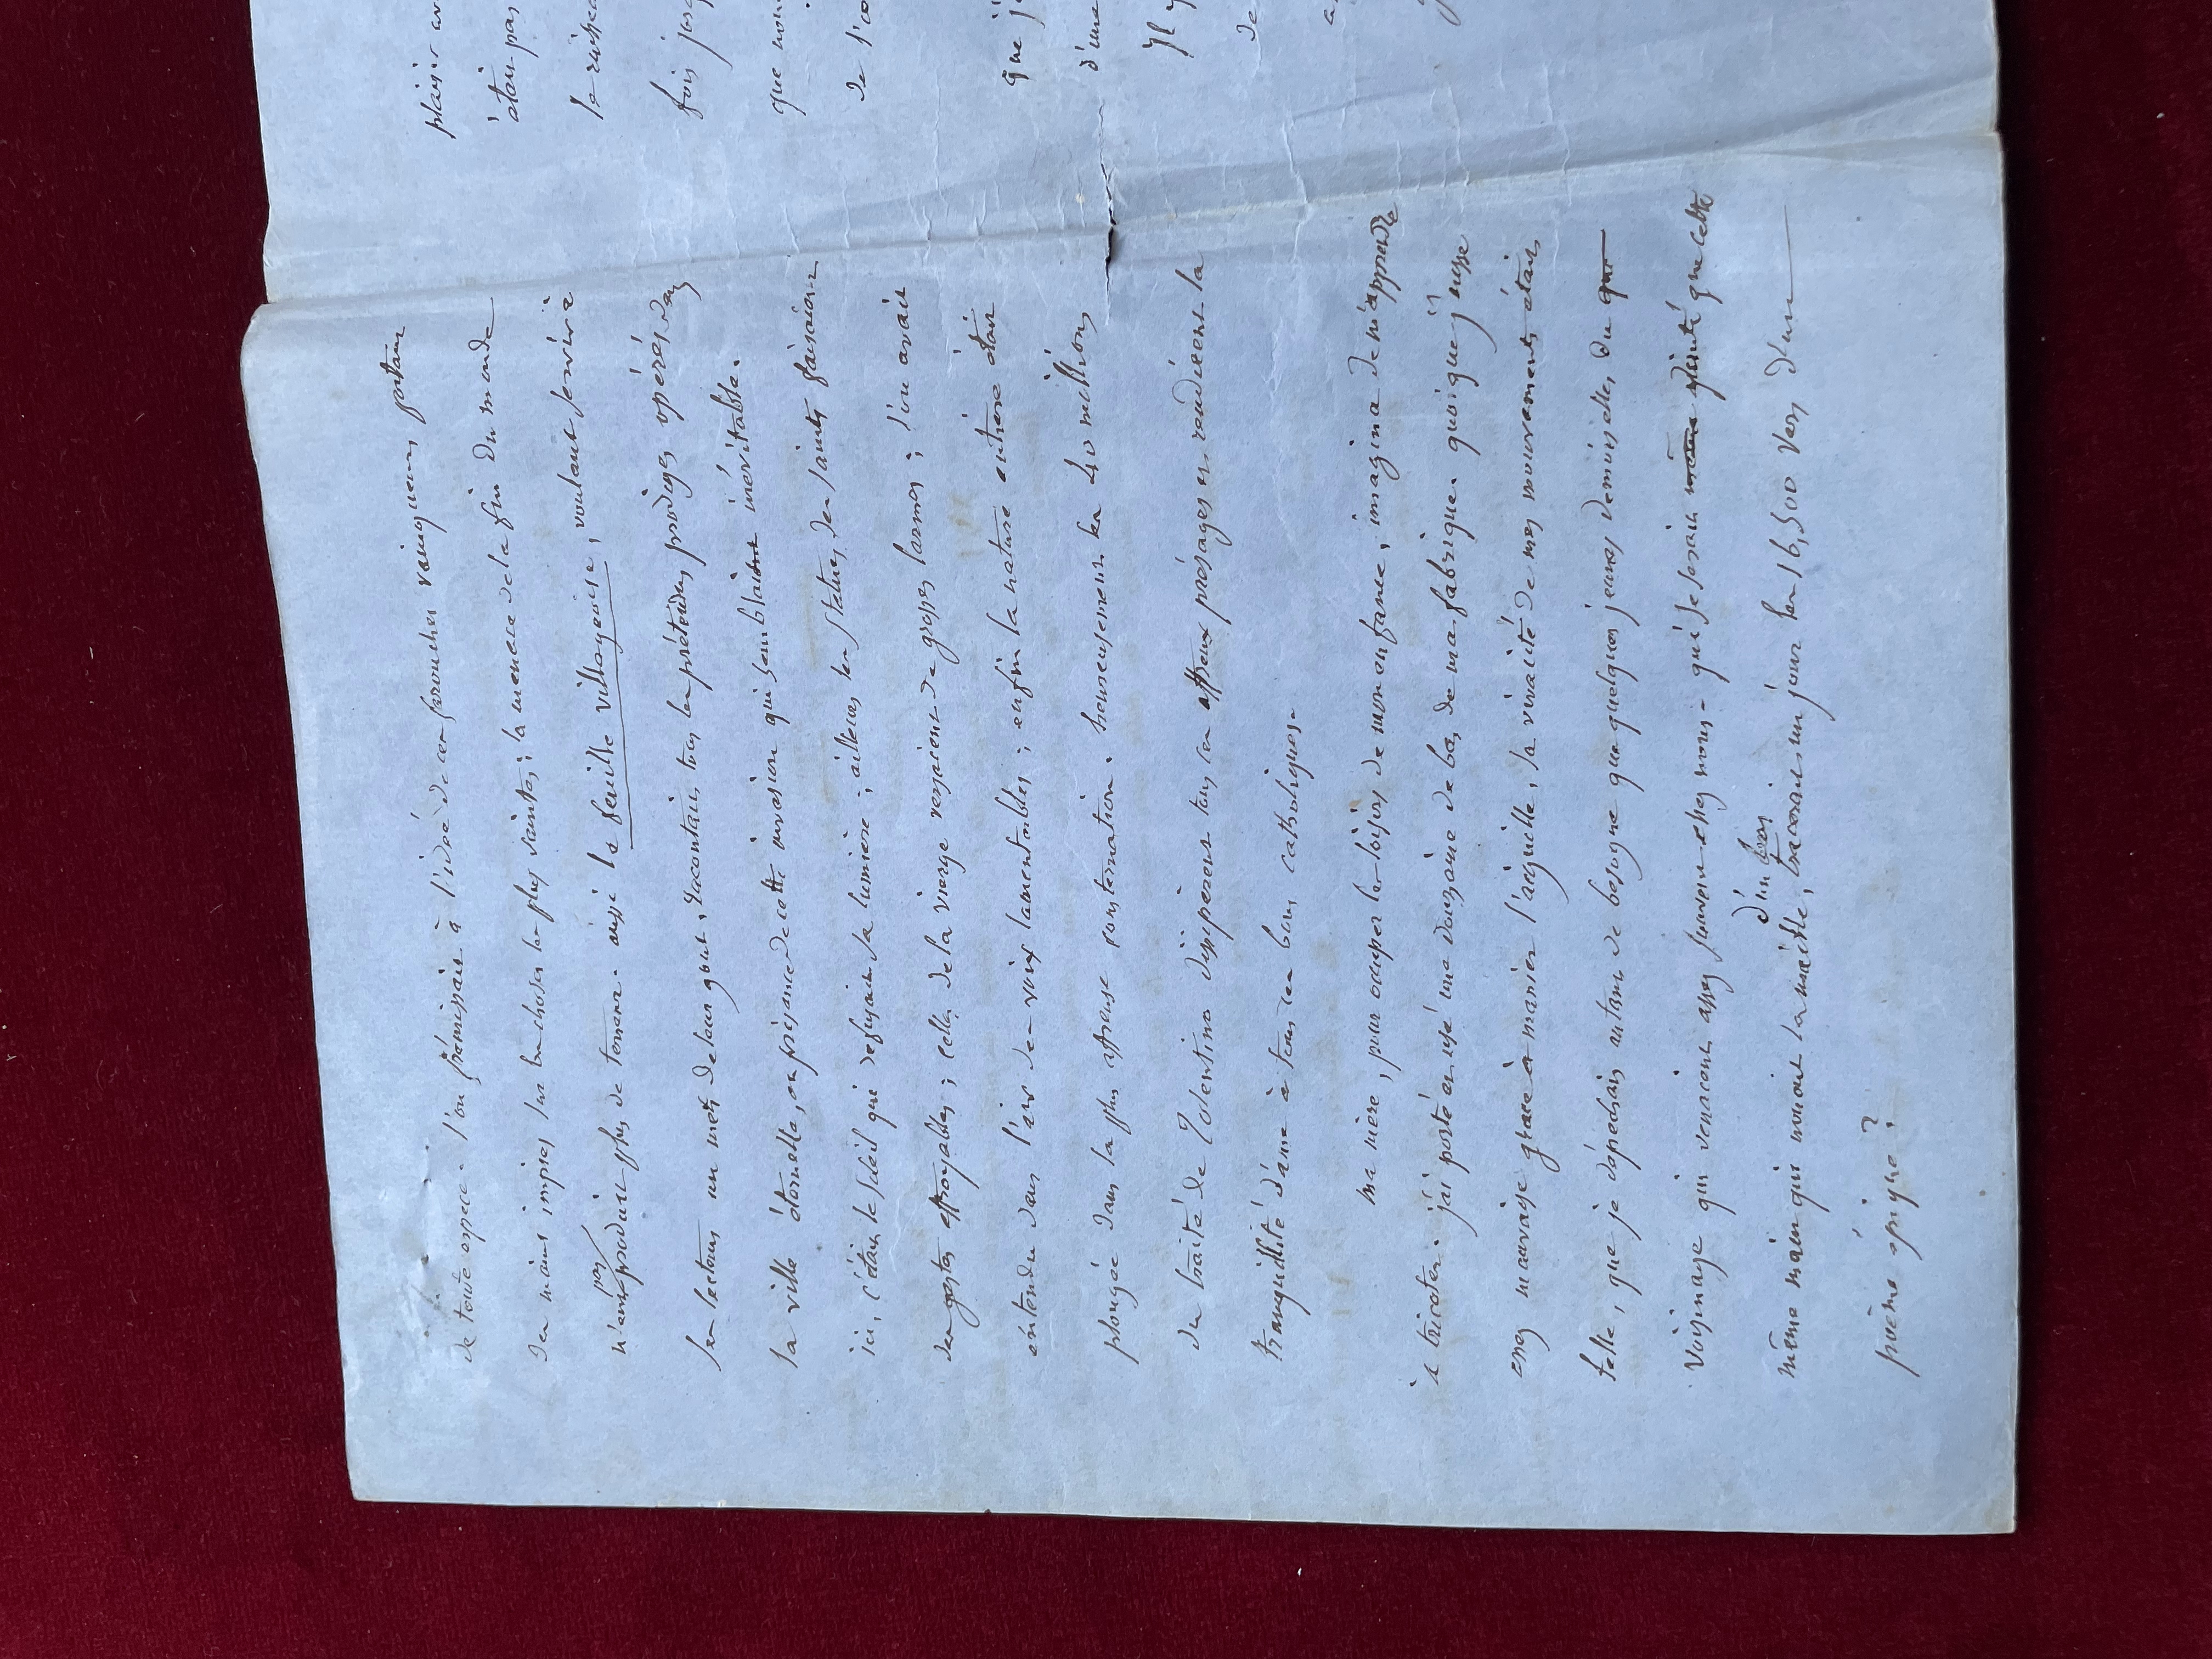 de toute espece. l'on frémissait à l'idée de ces farouches vainqueurs portant
des mains impies sur les choses les plus saintes; la menace de la fin du monde
n'eût pas produit plus de terreur. aussi la feuille villageoise, voulant servir à
ses lecteurs un mets de leur gout, racontait tous les prétendus prodiges opérés dans
la ville éternelle, en présence de cette invasion qui semblait inévitable.
ici, c'était le soleil qui refusait sa lumiere; ailleurs les statues des saints faisaient
des gestes effroyables; celles de la vierge versaient de grosses larmes; l'on avait
entendu dans l'air des voix lamentables; enfin la nature entière était
plongée dans la plus affreuse consternation. heureusement les 40 millions
du traité de Tolentino dissiperent tous ces affreux présages et rendirent la
tranquillité d'ame à tous les bons catholiques.
ma mère, pour occuper les loisirs de mon enfance, imagina de m'apprendre
à tricoter. j'ai porté et usé une douzaine de bas de ma fabrique. quoique j'eusse
assez mauvaise grace à manier l'aiguille, la vivacité de mes mouvements était
telle, que je dépéchais autant de besogne que quelques jeunes demoiselles du
voisinage qui venaient assez souvent chez nous - qui se serait douté que cette
même main qui nouait la maille, tracerait un jour les 16,500 vers d'un
d'un bas
poème épique?
plaisir
étais pas
fois
que
de
que j'
d'une
Il y
de